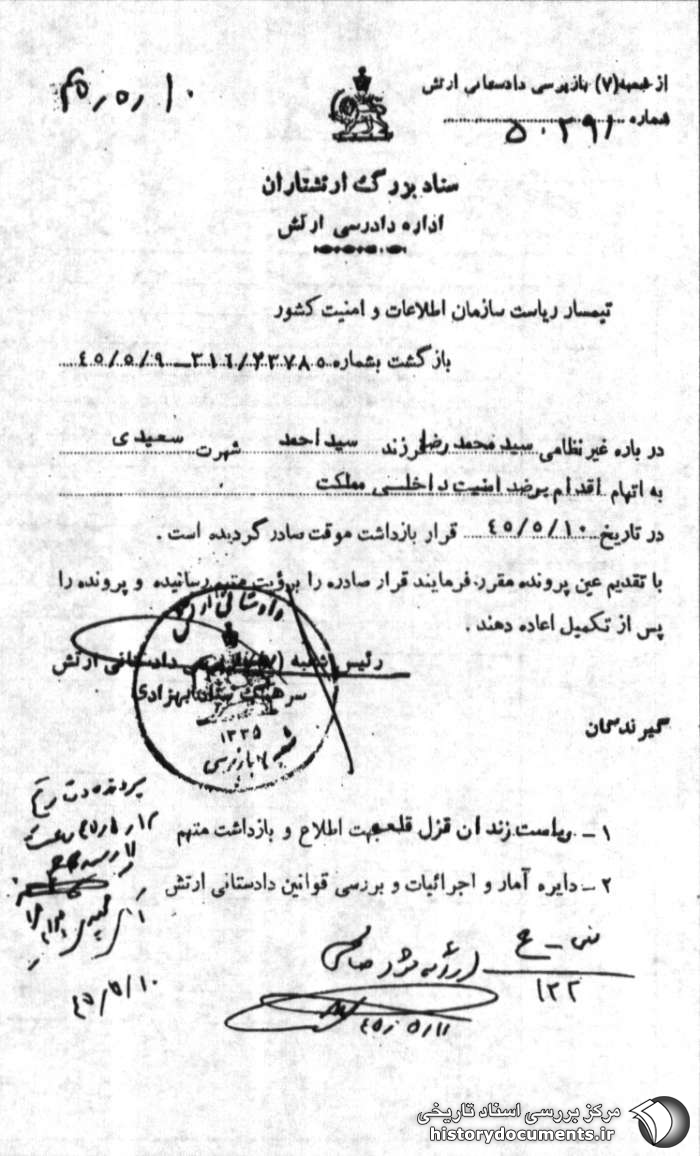 از شعبه (۷) بازپرسی دادستانی ارتش
شماره ۵۰۲۹۱
۴۵/۵/۱۰
ستاد بزرگ ارتشتاران
اداره دادرسی ارتش
تیمسار ریاست سازمان اطلاعات و امنیت کشور
بازگشت بشماره ۳۱۶/۲۳۷۸۵ – ۴۵/۵/۹
در باره غیر نظامی سید محمد رضا فرزند سید احمد شهرت سعیدی
به اتهام اقدام بر ضد امنیت داخلی مملکت
در تاریخ ۴۵/۵/۱۰ قرار بازداشت موقت صادر گردیده است .
با تقدیم عین پرونده مقرر فرمایند قرار صادره را برؤیت متهم رسانیده و پرونده را
پس از تکمیل اعاده دهند .
دادستانی ارتش
رئیس شعبه (۷) بازپرسی دادستانی ارتش
سرهنگ بهزادی
۱۳۳۵
بازپرسی
گیرندگان
۱ – ریاست زندان قزل قلعه جهت اطلاع و بازداشت متهم
۲ – دایره آمار و اجرائیات و بررسی قوانین دادستانی ارتش
۴۵/۵/۱۰
۱۲۲
مرکز بررسی اسناد تاریخی
historydocuments.ir